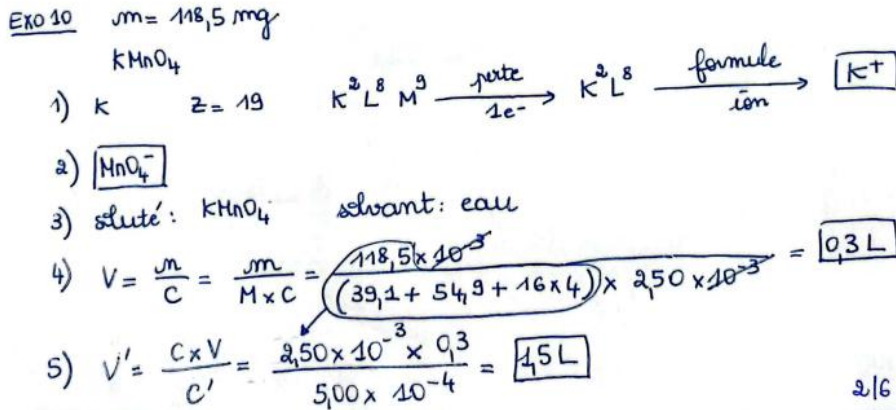 EXO 10 m = 118,5 mg
KMnO₄
1) K Z = 19 K² L⁸ M⁹ —perte 1e⁻→ K² L⁸ —formule ion→ K⁺
2) MnO₄⁻
3) soluté : KMnO₄ solvant : eau
4) V = n/C = m/(M × C) = 118,5 × 10⁻³ / ((39,1 + 54,9 + 16 × 4) × 2,50 × 10⁻³) = 0,3 L
5) V' = (C × V)/C' = (2,50 × 10⁻³ × 0,3)/(5,00 × 10⁻⁴) = 1,5 L
2/6